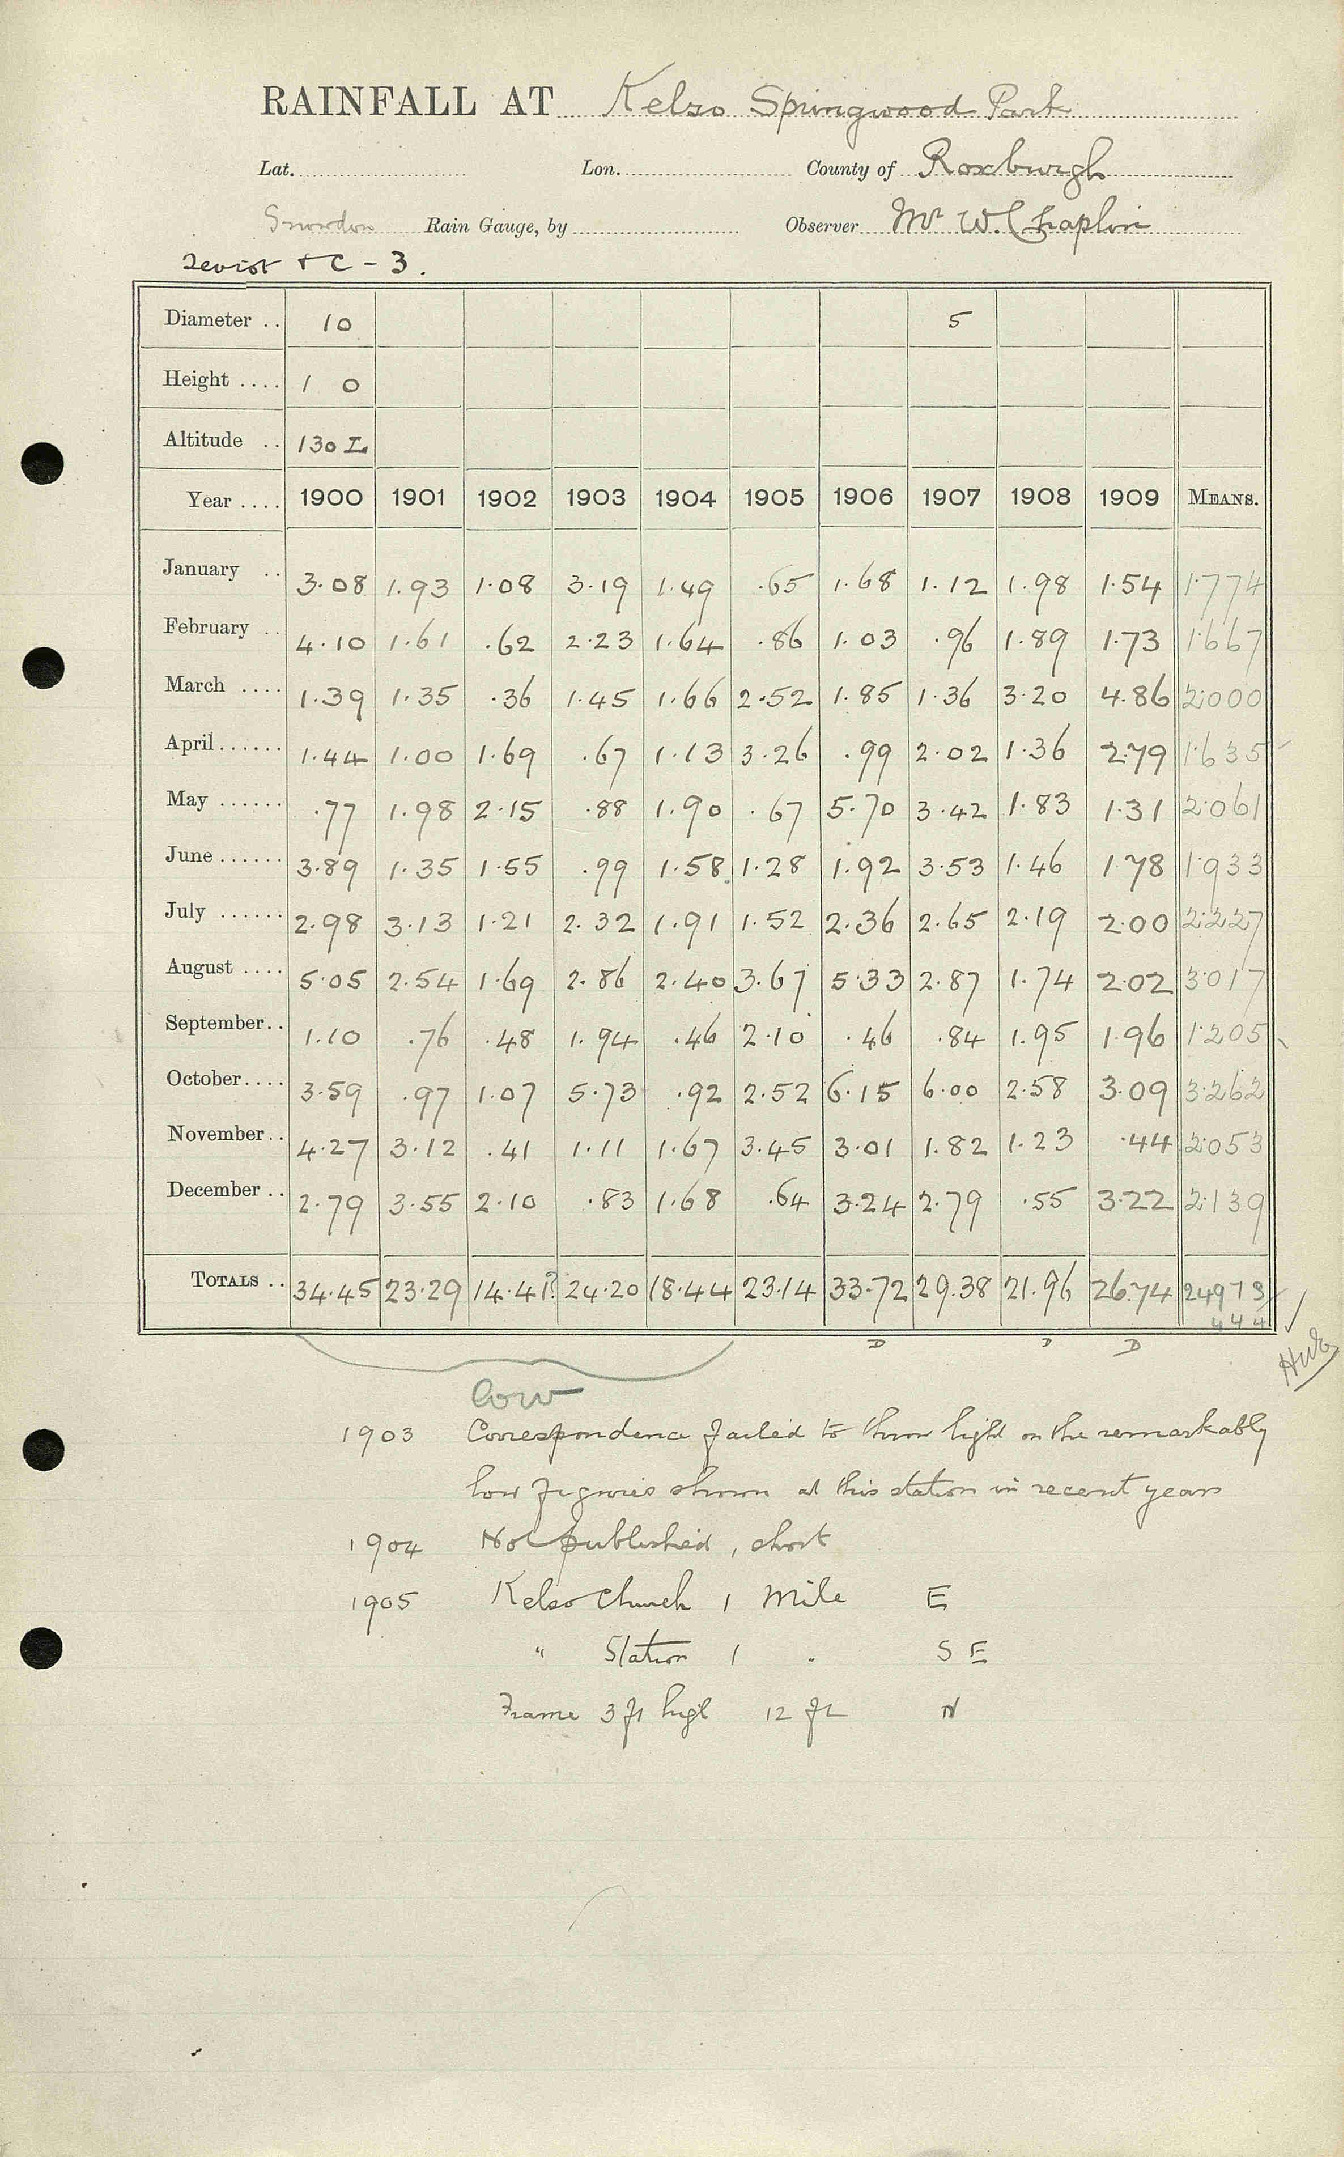 RAINFALL AT Kelso Springwood Park
Lat. Lon. County of Roxburgh
Snowdon Rain Gauge, by Observer Mr W. Chaplin
Teviot + C - 3.
Diameter .. 10 5
Height .... 1 0
Altitude .. 130 L
Year .... 1900 1901 1902 1903 1904 1905 1906 1907 1908 1909 MEANS.
January .. 3.08 1.93 1.08 3.19 1.49 .65 1.68 1.12 1.98 1.54 1.774
February .. 4.10 1.61 .62 2.23 1.64 .86 1.03 .96 1.89 1.73 1.667
March .... 1.39 1.35 .36 1.45 1.66 2.52 1.85 1.36 3.20 4.86 2.000
April...... 1.44 1.00 1.69 .67 1.13 3.26 .99 2.02 1.36 2.79 1.635
May ...... .77 1.98 2.15 .88 1.90 .67 5.70 3.42 1.83 1.31 2.061
June ...... 3.89 1.35 1.55 .99 1.58 1.28 1.92 3.53 1.46 1.78 1.933
July ...... 2.98 3.13 1.21 2.32 1.91 1.52 2.36 2.65 2.19 2.00 2.227
August .... 5.05 2.54 1.69 2.86 2.40 3.67 5.33 2.87 1.74 2.02 3.017
September.. 1.10 .76 .48 1.94 .46 2.10 .46 .84 1.95 1.96 1.205
October.... 3.59 .97 1.07 5.73 .92 2.52 6.15 6.00 2.58 3.09 3.262
November.. 4.27 3.12 .41 1.11 1.67 3.45 3.01 1.82 1.23 .44 2.053
December .. 2.79 3.55 2.10 .83 1.68 .64 3.24 2.79 .55 3.22 2.139
TOTALS .. 34.45 23.29 14.41? 24.20 18.44 23.14 33.72 29.38 21.96 26.74 24973
444
D D D
low
1903 Correspondence failed to throw light on the remarkably
low figures shown at this station in recent years
1904 Not published, short
1905 Kelso Church 1 Mile E
" Station 1 " S E
Frame 3 ft high 12 ft N